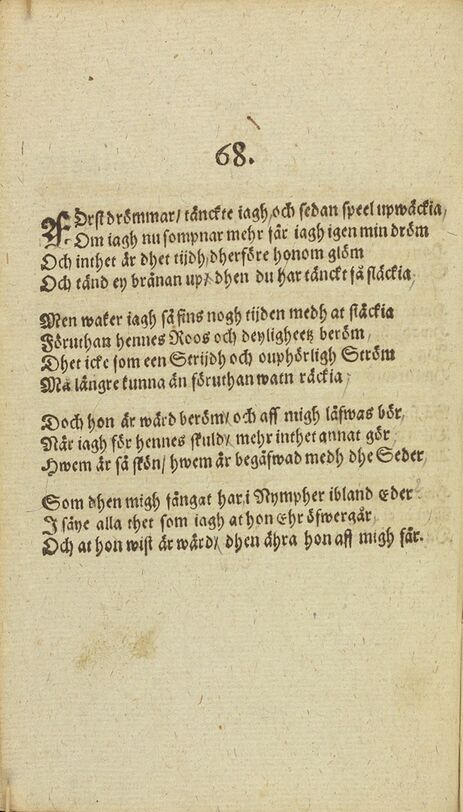 68.
FÖrst drömmar/ tänckte iagh, och sedan speel upwäckia,
Om iagh nu sompnar mehr får iagh igen min dröm
Och inthet är dhet tijdh, dherföre honom glöm
Och tänd ey brånan up/ dhen du har tänckt så släckia,
Men waker iagh så fins nogh tijden medh at stäckia
Föruthan hennes Roos och deyligheetz beröm,
Dhet icke som een Strijdh och ouphörligh Ström
Må längre kunna än föruthan watn räckia,
Doch hon är wärd beröm/ och aff migh läfwas bör,
När iagh för hennes skuld/ mehr inthet annat gör,
Hwem är så skön/ hwem är begåfwad medh dhe Seder,
Som dhen migh fångat har, i Nympher ibland Eder?
I säye alla thet som iagh at hon Ehr öfwergår,
Och at hon wist är wärd/ dhen ähra hon aff migh får.